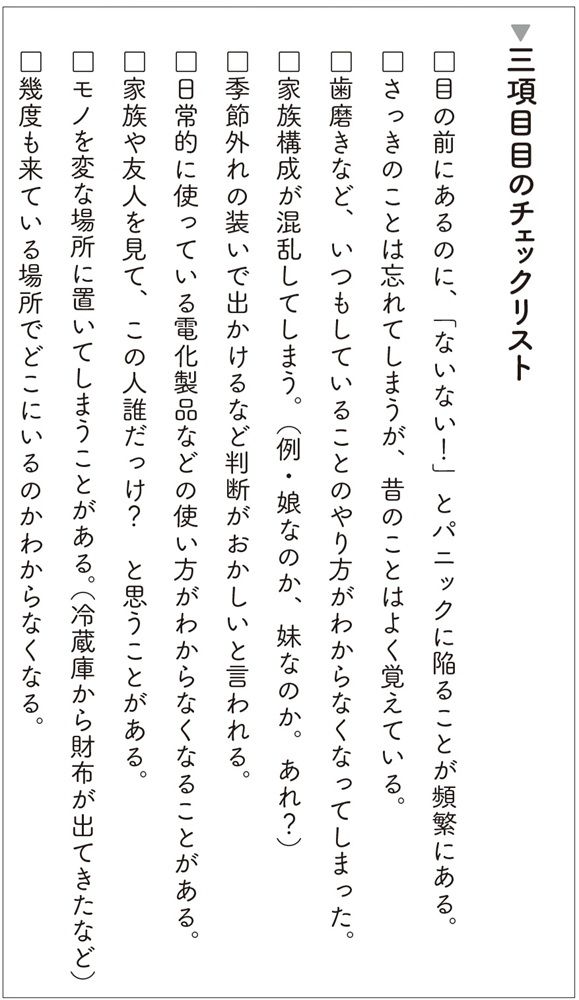 ▼三項目目のチェックリスト
□目の前にあるのに、「ないない！」とパニックに陥ることが頻繁にある。
□さっきのことは忘れてしまうが、昔のことはよく覚えている。
□歯磨きなど、いつもしていることのやり方がわからなくなってしまった。
□家族構成が混乱してしまう。（例・娘なのか、妹なのか。あれ？）
□季節外れの装いで出かけるなど判断がおかしいと言われる。
□日常的に使っている電化製品などの使い方がわからなくなることがある。
□家族や友人を見て、この人誰だっけ？　と思うことがある。
□モノを変な場所に置いてしまうことがある。（冷蔵庫から財布が出てきたなど）
□幾度も来ている場所でどこにいるのかわからなくなる。